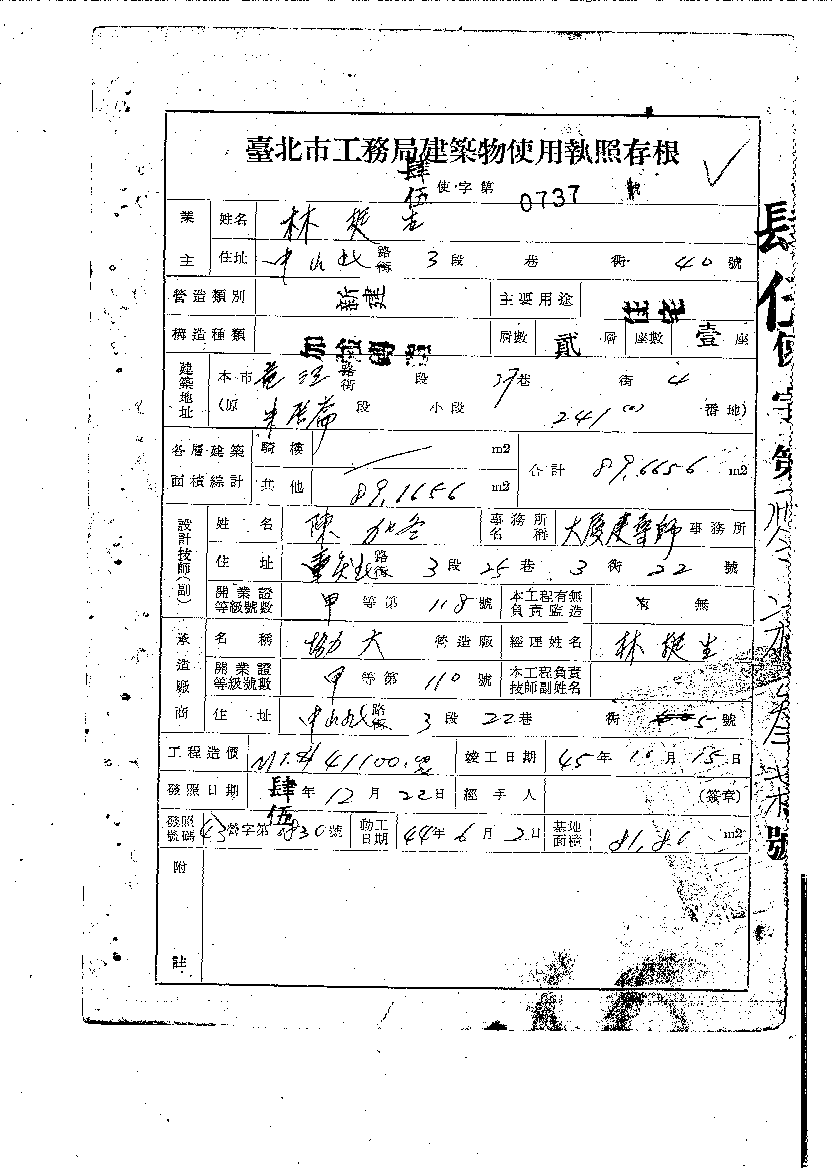 臺北市工務局建築物使用執照存根
肆伍 使字第 0737 號
業主 姓名 林挺生
住址 中山北路街 3段 巷 衖 40號
營造類別 新建 主要用途 住宅
構造種類 加強磚造 層數 貳層 座數 壹座
建築地址 本市 路街 段 巷 衖 4
(原 朱厝崙段 小段 241 番地)
各層建築面積綜計 騎樓 m2 合計 89.6656 m2
其他 89.1656 m2
設計技師(副) 姓名 陳 事務所名稱 大廈建築師事務所
住址 重慶北路街 3段 25巷 3衖 22號
開業證等級號數 甲等第 118號 本工程有無負責監造 有 無
承造廠商 名稱 協大 營造廠 經理姓名 林挺生
開業證等級號數 甲等第 110號 本工程負責技師副姓名
住址 中山北路街 3段 22巷 衖 5號
工程造價 41100.00 竣工日期 45年10月15日
發照日期 肆伍年12月22日 經手人 (簽章)
發照號碼 43營字第 號 動工日期 44年6月2日 基地面積 81.86 m2
附註
肆伍使字第
號